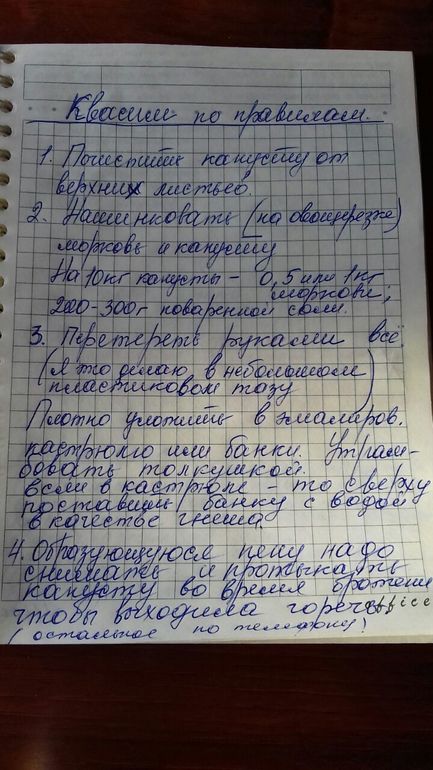 Квасим по правилам.
1. Почистить капусту от
верхних листьев.
2. Нашинковать (на овощерезке)
морковь и капусту
На 10кг капусты - 0,5 или 1кг
моркови;
200-300г поваренной соли.
3. Перетереть руками всё.
(я это делаю в небольшом
пластиковом тазу)
Плотно уложить в эмалиров.
кастрюлю или банки. Утрам-
бовать толкушкой.
если в кастрюле - то сверху
поставить банку с водой
в качестве гнёта.
4. Образующуюся пену надо
снимать и протыкать
капусту во время брожения
чтобы выходила горечь.
(остальное по телефону)
office